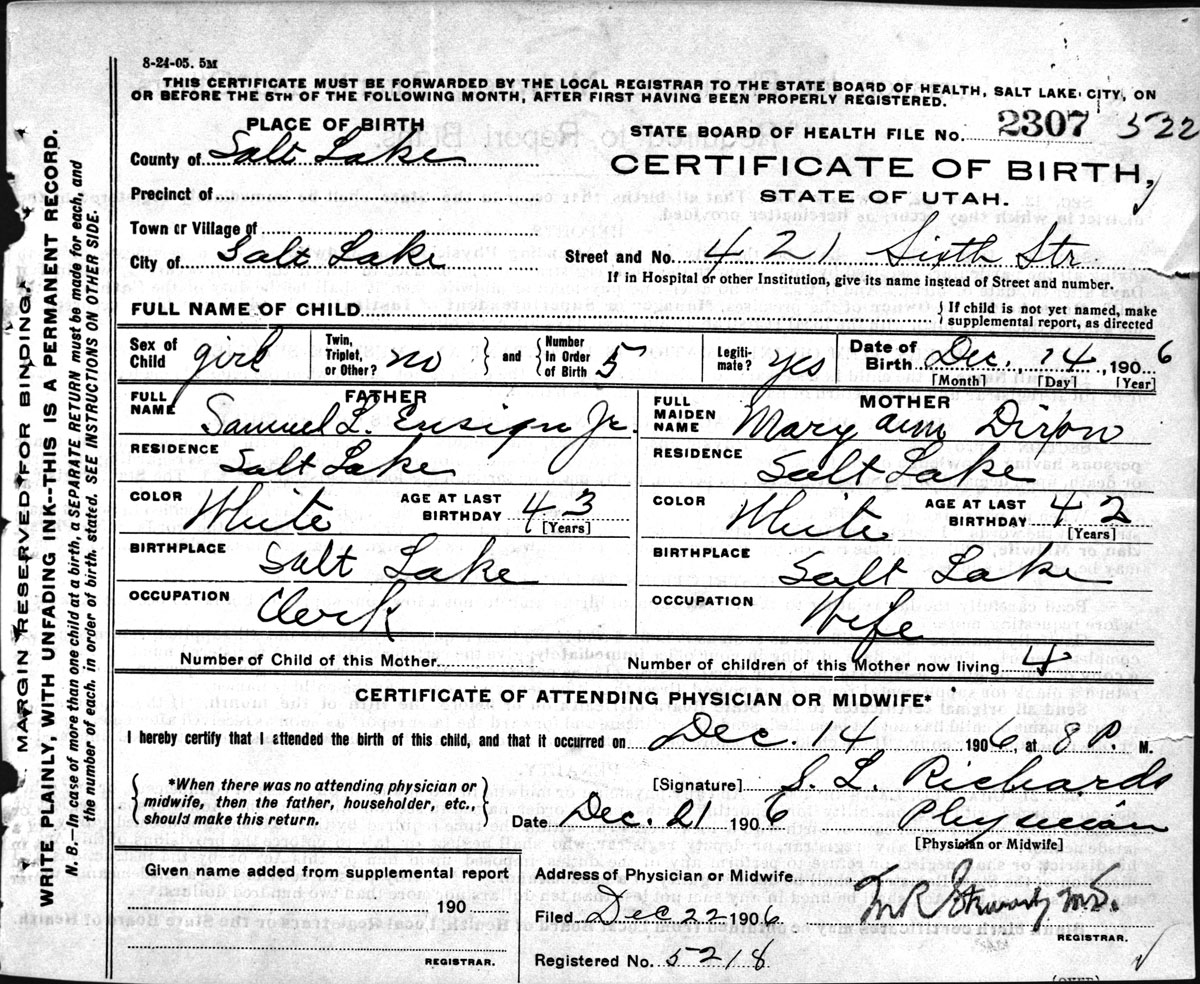 8-24-05. 5M
THIS CERTIFICATE MUST BE FORWARDED BY THE LOCAL REGISTRAR TO THE STATE BOARD OF HEALTH, SALT LAKE CITY, ON
OR BEFORE THE 5TH OF THE FOLLOWING MONTH, AFTER FIRST HAVING BEEN PROPERLY REGISTERED.
PLACE OF BIRTH
STATE BOARD OF HEALTH FILE No. 2307 522
County of Salt Lake
CERTIFICATE OF BIRTH,
STATE OF UTAH.
Precinct of
Town or Village of
City of Salt Lake
Street and No. 421 Sixth Str.
If in Hospital or other Institution, give its name instead of Street and number.
FULL NAME OF CHILD
{ If child is not yet named, make
supplemental report, as directed
Sex of Child girl
Twin, Triplet, or Other? no } and { Number In Order of Birth 5
Legiti- mate? yes
Date of Birth Dec. 14, 1906
[Month] [Day] [Year]
FATHER
FULL NAME Samuel L. Ensign Jr.
MOTHER
FULL MAIDEN NAME Mary ann Dixon
RESIDENCE Salt Lake
RESIDENCE Salt Lake
COLOR White AGE AT LAST BIRTHDAY 43 [Years]
COLOR White AGE AT LAST BIRTHDAY 42 [Years]
BIRTHPLACE Salt Lake
BIRTHPLACE Salt Lake
OCCUPATION Clerk
OCCUPATION Wife
Number of Child of this Mother
Number of children of this Mother now living 4
CERTIFICATE OF ATTENDING PHYSICIAN OR MIDWIFE
I hereby certify that I attended the birth of this child, and that it occurred on Dec. 14 1906, at 8 P. M.
{ *When there was no attending physician or
midwife, then the father, householder, etc.,
should make this return. }
[Signature] S. L. Richards
Date Dec. 21 1906 Physician
[Physician or Midwife]
Given name added from supplemental report
190
REGISTRAR.
Address of Physician or Midwife
Filed Dec 22 1906
REGISTRAR.
Registered No. 5218
MARGIN RESERVED FOR BINDING.
WRITE PLAINLY, WITH UNFADING INK--THIS IS A PERMANENT RECORD.
N. B.—In case of more than one child at a birth, a SEPARATE RETURN must be made for each, and
the number of each, in order of birth, stated. SEE INSTRUCTIONS ON OTHER SIDE.